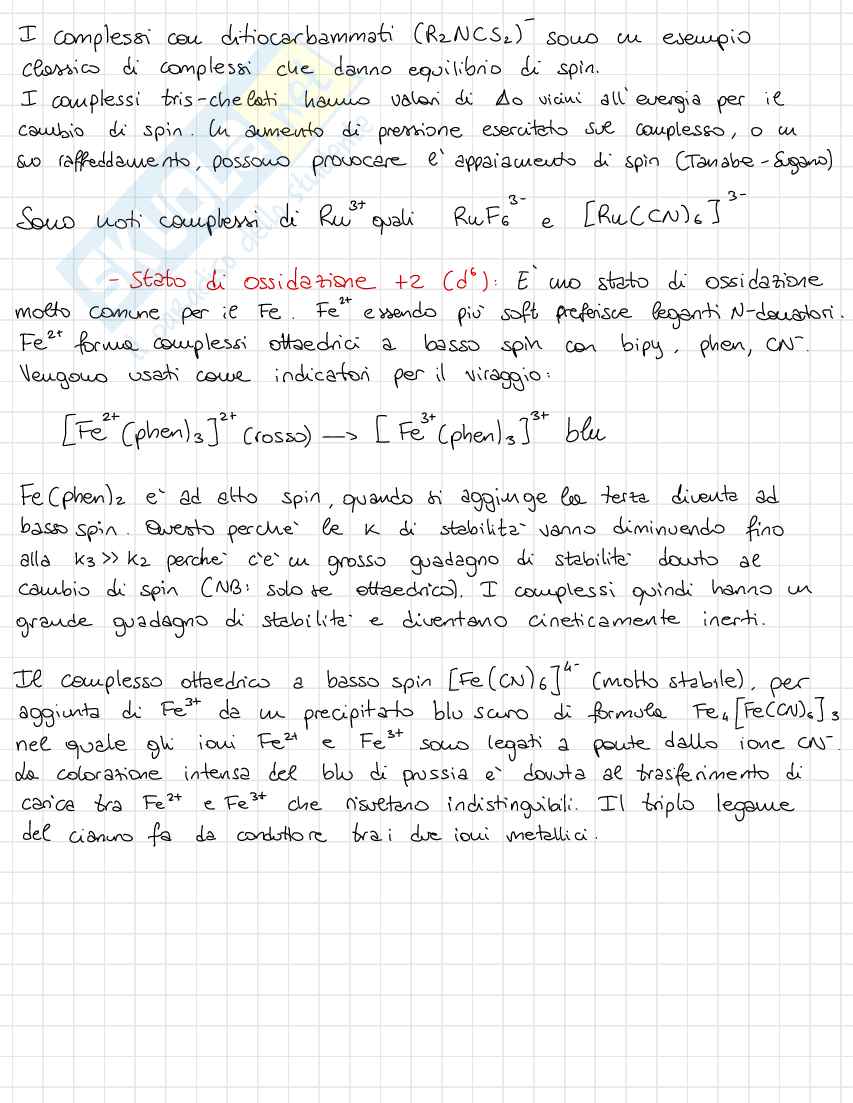 I complessi con ditiocarbammati (R2NCS2)⁻ sono un esempio
classico di complessi che danno equilibrio di spin.
I complessi tris-chelati hanno valori di Δo vicini all'energia per il
cambio di spin. Un aumento di pressione esercitato sul complesso, o un
suo raffreddamento, possono provocare l'appaiamento di spin (Tanabe-Sugano)
Sono noti complessi di Ru³⁺ quali RuF₆³⁻ e [Ru(CN)₆]³⁻
- Stato di ossidazione +2 (d⁶): E' uno stato di ossidazione
molto comune per il Fe. Fe²⁺ essendo più soft preferisce leganti N-donatori.
Fe²⁺ forma complessi ottaedrici a basso spin con bipy, phen, CN⁻.
Vengono usati come indicatori per il viraggio:
[Fe²⁺(phen)₃]²⁺ (rosso) → [Fe³⁺(phen)₃]³⁺ blu
Fe(phen)₂ e' ad alto spin, quando si aggiunge la terza diventa ad
basso spin. Questo perche' le K di stabilita' vanno diminuendo fino
alla K₃ >> K₂ perche' c'e' un grosso guadagno di stabilita' dovuto al
cambio di spin (NB: solo se ottaedrico). I complessi quindi hanno un
grande guadagno di stabilita' e diventano cineticamente inerti.
Il complesso ottaedrico a basso spin [Fe(CN)₆]⁴⁻ (molto stabile), per
aggiunta di Fe³⁺ da un precipitato blu scuro di formula Fe₄[Fe(CN)₆]₃
nel quale gli ioni Fe²⁺ e Fe³⁺ sono legati a ponte dallo ione CN⁻.
La colorazione intensa del blu di prussia e' dovuta al trasferimento di
carica tra Fe²⁺ e Fe³⁺ che risultano indistinguibili. Il triplo legame
del cianuro fa da conduttore tra i due ioni metallici.
SKUOLA.net
il paradiso dello studente